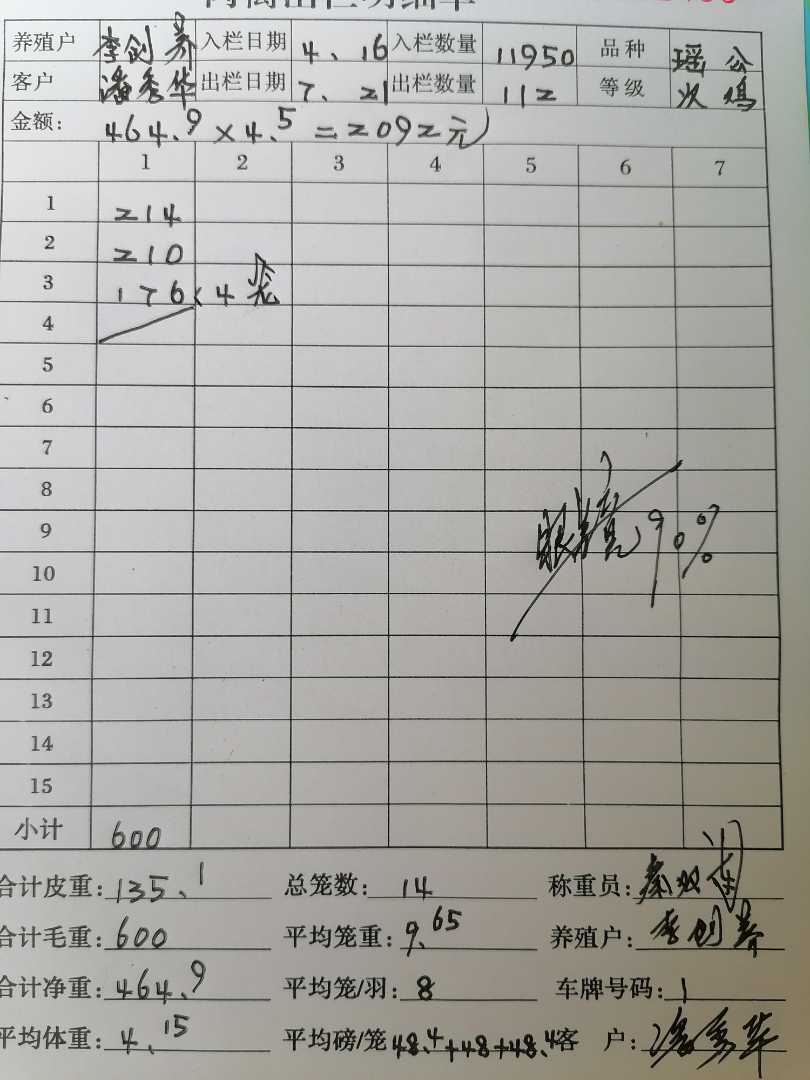 肉禽出栏明细单
养殖户 李创养 入栏日期 4.16 入栏数量 11950 品种 瑶公
客户 潘秀华 出栏日期 7.21 出栏数量 112 等级 次鸡
金额: 464.9×4.5=2092元
1 2 3 4 5 6 7
1 214
2 210
3 176×4笼
4
5
6
7
8
9 90%
10
11
12
13
14
15
小计 600
合计皮重: 135.1 总笼数: 14 称重员: 秦双
合计毛重: 600 平均笼重: 9.65 养殖户: 李创养
合计净重: 464.9 平均笼/羽: 8 车牌号码: 1
平均体重: 4.15 平均磅/笼 48.4+48+48.4 客户: 潘秀华